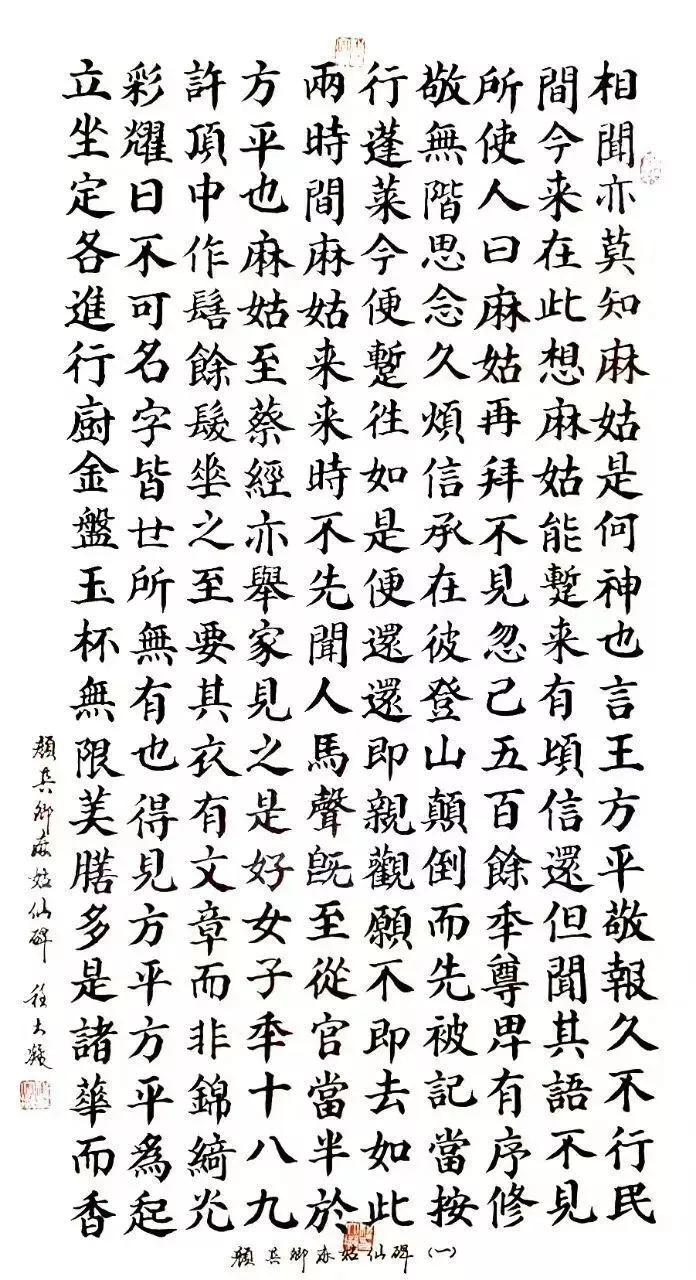 相聞亦莫知麻姑是何神也言王方平敬報久不行民
間今来在此想麻姑能蹔来有頃信還但聞其語不見
所使人曰麻姑再拜不見忽已五百餘年尊卑有序修
敬無階思念久煩信承在彼登山顛倒而先被記當按
行蓬萊今便蹔往如是便還還即親觀願不即去如此
兩時間麻姑来来時不先聞人馬聲旣至從官當半於
方平也麻姑至蔡經亦舉家見之是好女子年十八九
許頂中作髻餘髮垂之至要其衣有文章而非錦綺光
彩耀日不可名字皆世所無有也得見方平方平為起
立坐定各進行厨金盤玉杯無限美膳多是諸華而香
顏真卿麻姑仙碑
顏真卿麻姑仙碑(一)